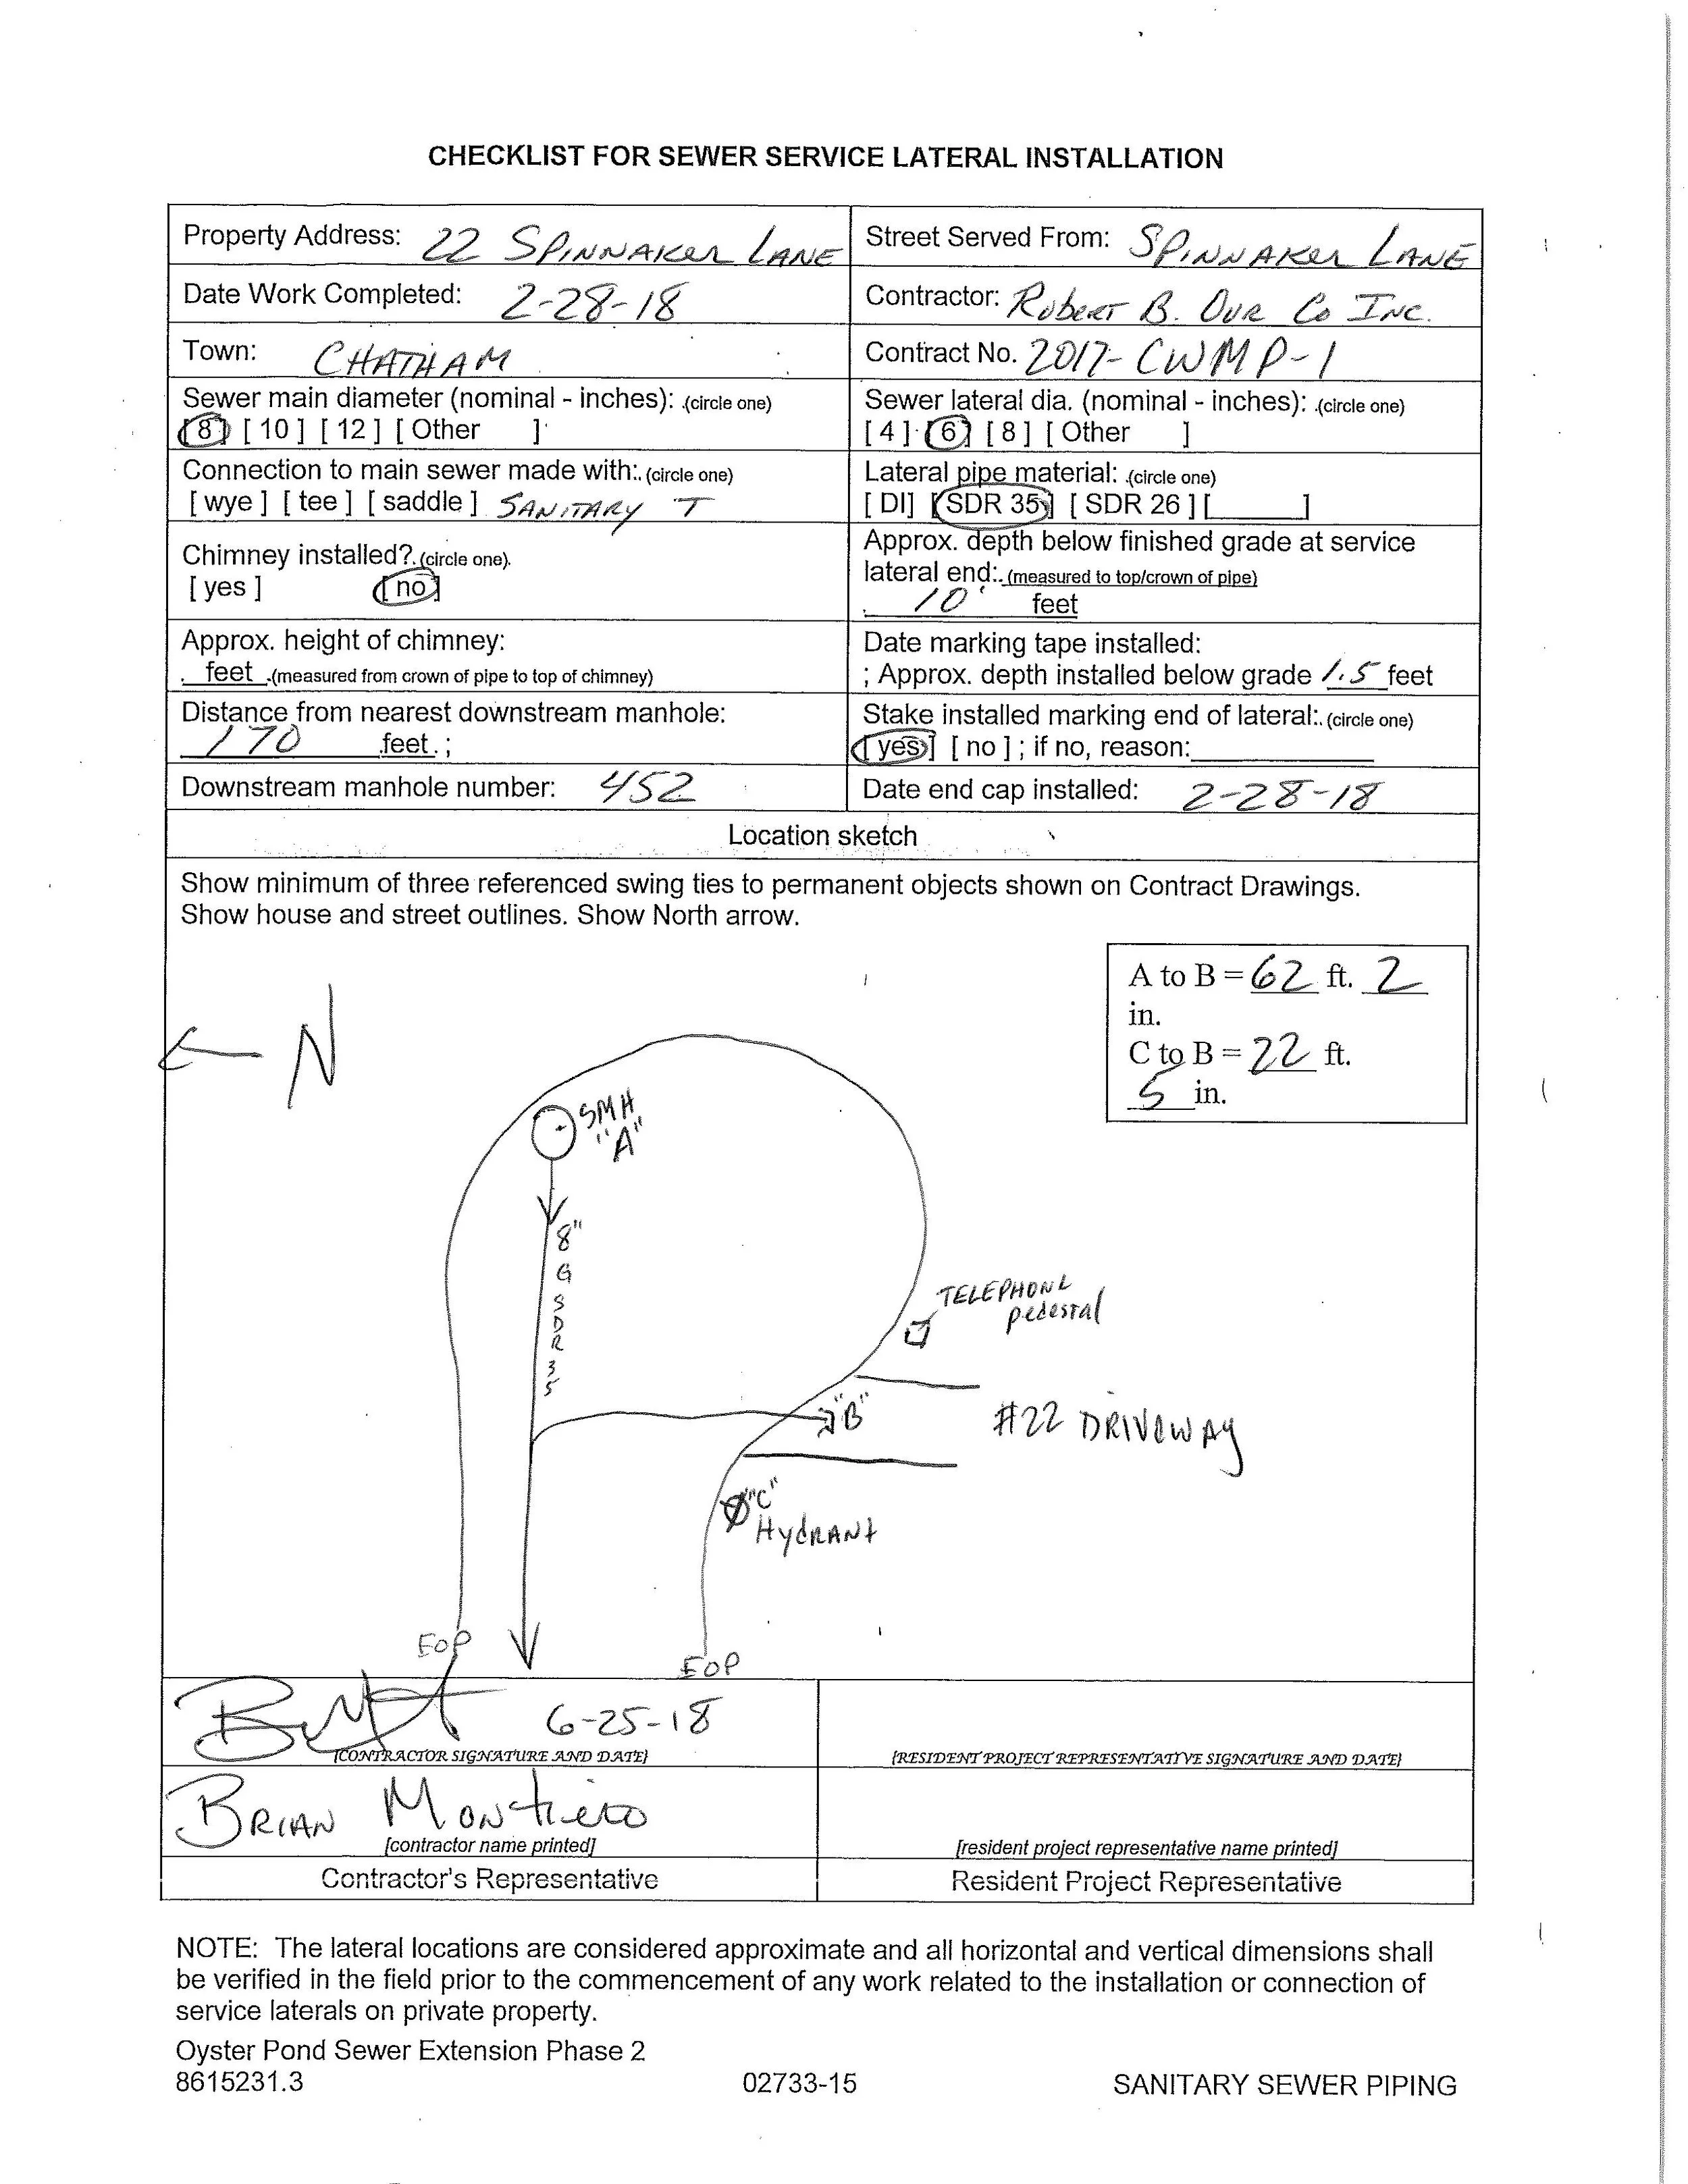 CHECKLIST FOR SEWER SERVICE LATERAL INSTALLATION
Property Address: 22 SPINNAKER LANE
Street Served From: SPINNAKER LANE
Date Work Completed: 2-28-18
Contractor: Robert B. Our Co Inc.
Town: CHATHAM
Contract No. 2017-CWMP-1
Sewer main diameter (nominal - inches): (circle one)
[8] [ 10 ] [ 12 ] [ Other ]
Sewer lateral dia. (nominal - inches): (circle one)
[ 4 ] [6] [ 8 ] [ Other ]
Connection to main sewer made with: (circle one)
[ wye ] [ tee ] [ saddle ] SANITARY T
Lateral pipe material: (circle one)
[ DI] [SDR 35] [ SDR 26 ] [______]
Chimney installed? (circle one).
[ yes ] [ no ]
Approx. depth below finished grade at service
lateral end: (measured to top/crown of pipe)
10' feet
Approx. height of chimney:
feet (measured from crown of pipe to top of chimney)
Date marking tape installed:
; Approx. depth installed below grade 1.5 feet
Distance from nearest downstream manhole:
170 feet ;
Stake installed marking end of lateral: (circle one)
[ yes ] [ no ] ; if no, reason:
Downstream manhole number: 452
Date end cap installed: 2-28-18
Location sketch
Show minimum of three referenced swing ties to permanent objects shown on Contract Drawings.
Show house and street outlines. Show North arrow.
A to B = 62 ft. 2
in.
C to B = 22 ft.
5 in.
N
SMH
"A"
8"
G
S
D
R
3
5
TELEPHONE
pedestal
"B"
#22 DRIVEWAY
"C"
HydRANt
EOP
EOP
6-25-18
[CONTRACTOR SIGNATURE AND DATE]
[RESIDENT PROJECT REPRESENTATIVE SIGNATURE AND DATE]
BRIAN Montiero
[contractor name printed]
[resident project representative name printed]
Contractor's Representative
Resident Project Representative
NOTE: The lateral locations are considered approximate and all horizontal and vertical dimensions shall
be verified in the field prior to the commencement of any work related to the installation or connection of
service laterals on private property.
Oyster Pond Sewer Extension Phase 2
8615231.3
02733-15
SANITARY SEWER PIPING